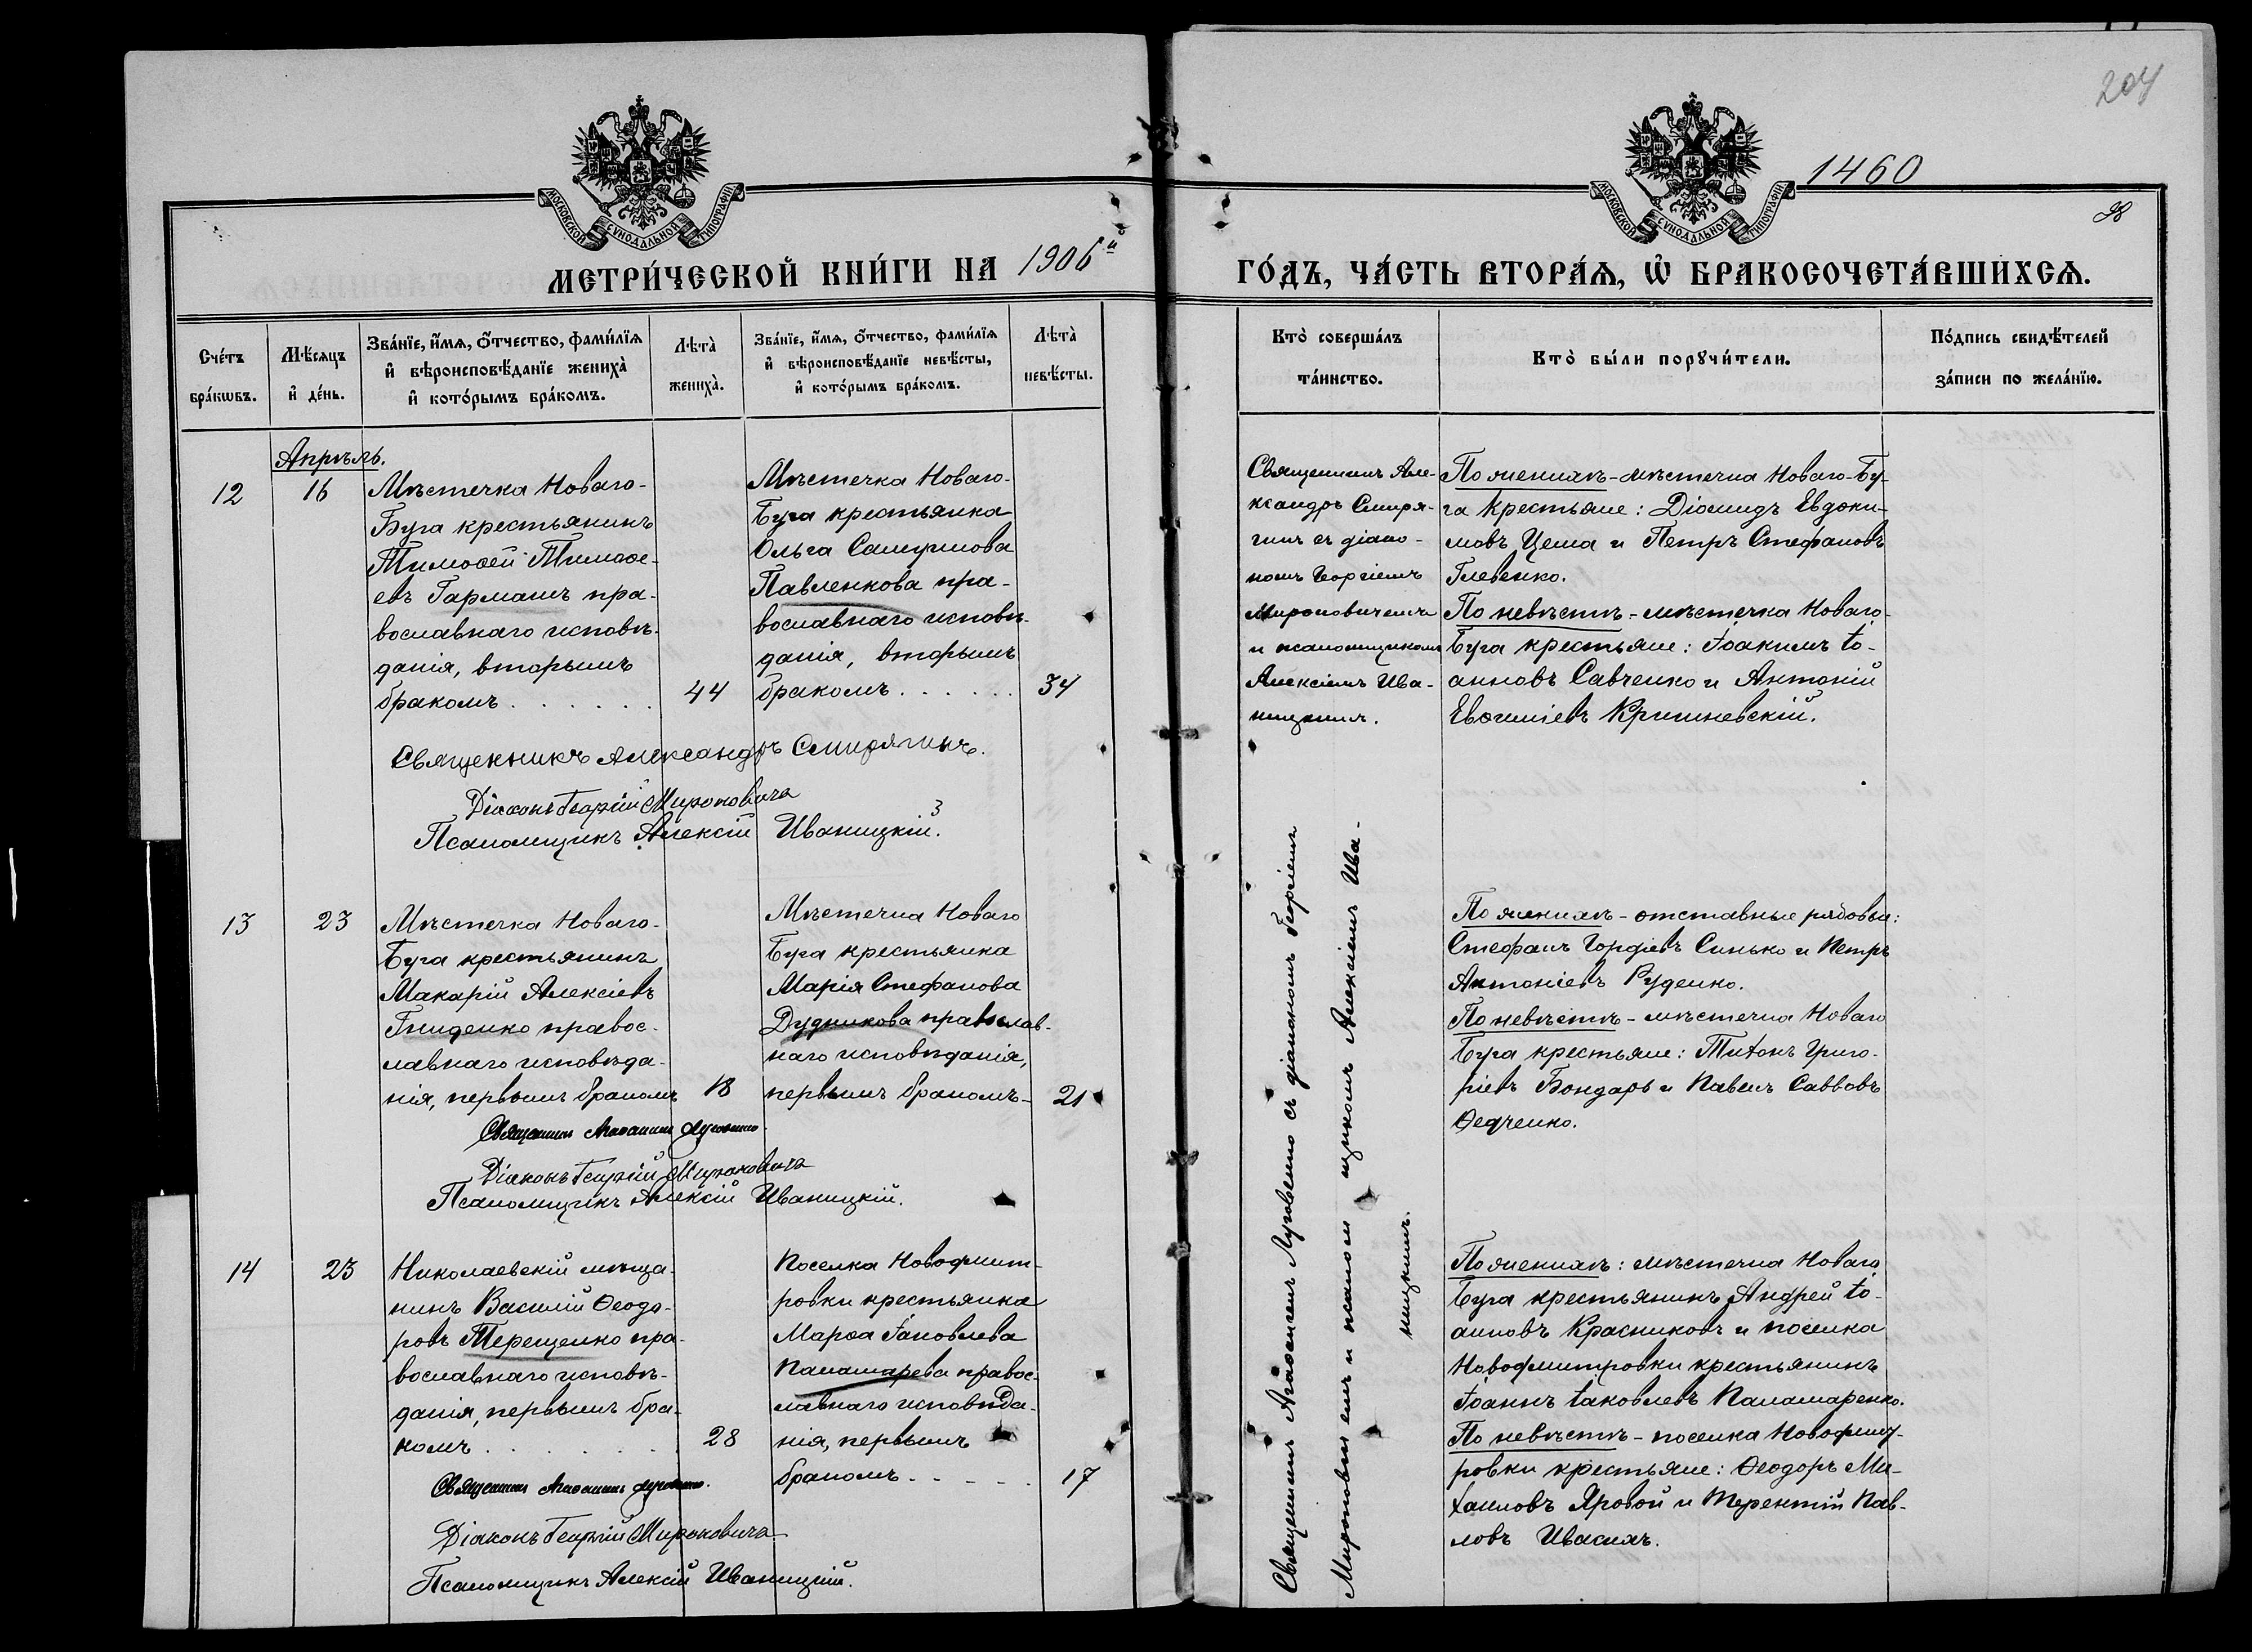 204
1460
98
МОСКОВСКОЙ СУНОДАЛЬНОЙ ТИПОГРАФІИ
МОСКОВСКОЙ СУНОДАЛЬНОЙ ТИПОГРАФІИ
МЕТРИ́ЧЕСКОЙ КНИ́ГИ НА 1906й
ГО́ДЪ, ЧА́СТЬ ВТОРА́Ѧ, Ѽ БРАКОСОЧЕТА́ВШИХСѦ.
Сче́тъ бра́кѡвъ.
Мѣ́сѧцъ и҆ де́нь.
Зва́нїе, и҆́мѧ, ѻ҆́тчество, фами́лїѧ и҆ вѣроисповѣ́данїе жениха̀ и҆ кото́рымъ бра́комъ.
Лѣта̀ жениха̀.
Зва́нїе, и҆́мѧ, ѻ҆́тчество, фами́лїѧ и҆ вѣроисповѣ́данїе невѣ́сты, и҆ кото́рымъ бра́комъ.
Лѣта̀ невѣ́сты.
Кто̀ соверша́лъ та́инство.
Кто̀ бы́ли порꙋчи́тели.
По́дпись свидѣ́телей за́писи по жела́нїю.
Апрѣль.
12
16
Мѣстечка Новаго-
Буга крестьянинъ
Тимоѳей Тимоѳе-
евъ Гармашъ пра-
вославнаго исповѣ-
данія, вторымъ
бракомъ . . . . . .
44
Мѣстечка Новаго-
Буга крестьянка
Ольга Самуилова
Павленкова пра-
вославнаго исповѣ-
данія, вторымъ
бракомъ . . . . . .
34
Священникъ Але-
ксандръ Смиря-
гинъ съ діако-
номъ Георгіемъ
Мироновичемъ
и псаломщикомъ
Алексіемъ Ива-
ницкимъ.
По женихѣ - мѣстечка Новаго-Бу-
га крестьяне: Діомидъ Евдоки-
мовъ Цема и Петръ Стефановъ
Глевенко.
По невѣстѣ - мѣстечка Новаго-
Буга крестьяне: Іоакимъ Іо-
анновъ Савченко и Антоній
Евѳиміевъ Кришневскій.
Священникъ Александръ Смирягинъ.
Діаконъ Георгій Мироновичъ
Псаломщикъ Алексій Иваницкій.
13
23
Мѣстечка Новаго-
Буга крестьянинъ
Макарій Алексіевъ
Гниденко правос-
лавнаго исповѣда-
нія, первымъ бракомъ
18
Мѣстечка Новаго
Буга крестьянка
Марія Стефанова
Дудникова православ-
наго исповѣданія,
первымъ бракомъ -
21
Священникъ
съ діакономъ Георгіемъ
Мироновичемъ и псаломщикомъ Алексіемъ Ива-
ницкимъ.
По женихѣ - отставные рядовые:
Стефанъ Гордіевъ Синько и Петръ
Антоніевъ Руденко.
По невѣстѣ - мѣстечка Новаго
Буга крестьяне: Титонъ Григо-
ріевъ Бондарь и Павелъ Саввовъ
Ѳедченко.
Священникъ
Діаконъ Георгій Мироновичъ
Псаломщикъ Алексій Иваницкій.
14
23
Николаевскій мѣща-
нинъ Василій Ѳеодо-
ровъ Терещенко пра-
вославнаго исповѣ-
данія, первымъ бра-
комъ . . . . . . .
28
Поселка Новодмит-
ровки крестьянка
Марѳа Іаковлева
Паламарева правос-
лавнаго исповѣда-
нія, первымъ
бракомъ . . . . .
17
По женихѣ: мѣстечка Новаго
Буга крестьянинъ Андрей Іо-
анновъ Красниковъ и поселка
Новодмитровки крестьянинъ
Іоаннъ Іаковлевъ Паламаренко.
По невѣстѣ - поселка Новодмит-
ровки крестьяне: Ѳеодоръ Ми-
хаиловъ Яровой и Терентій Пав-
ловъ Ивасикъ.
Священникъ
Діаконъ Георгій Мироновичъ
Псаломщикъ Алексій Иваницкій.